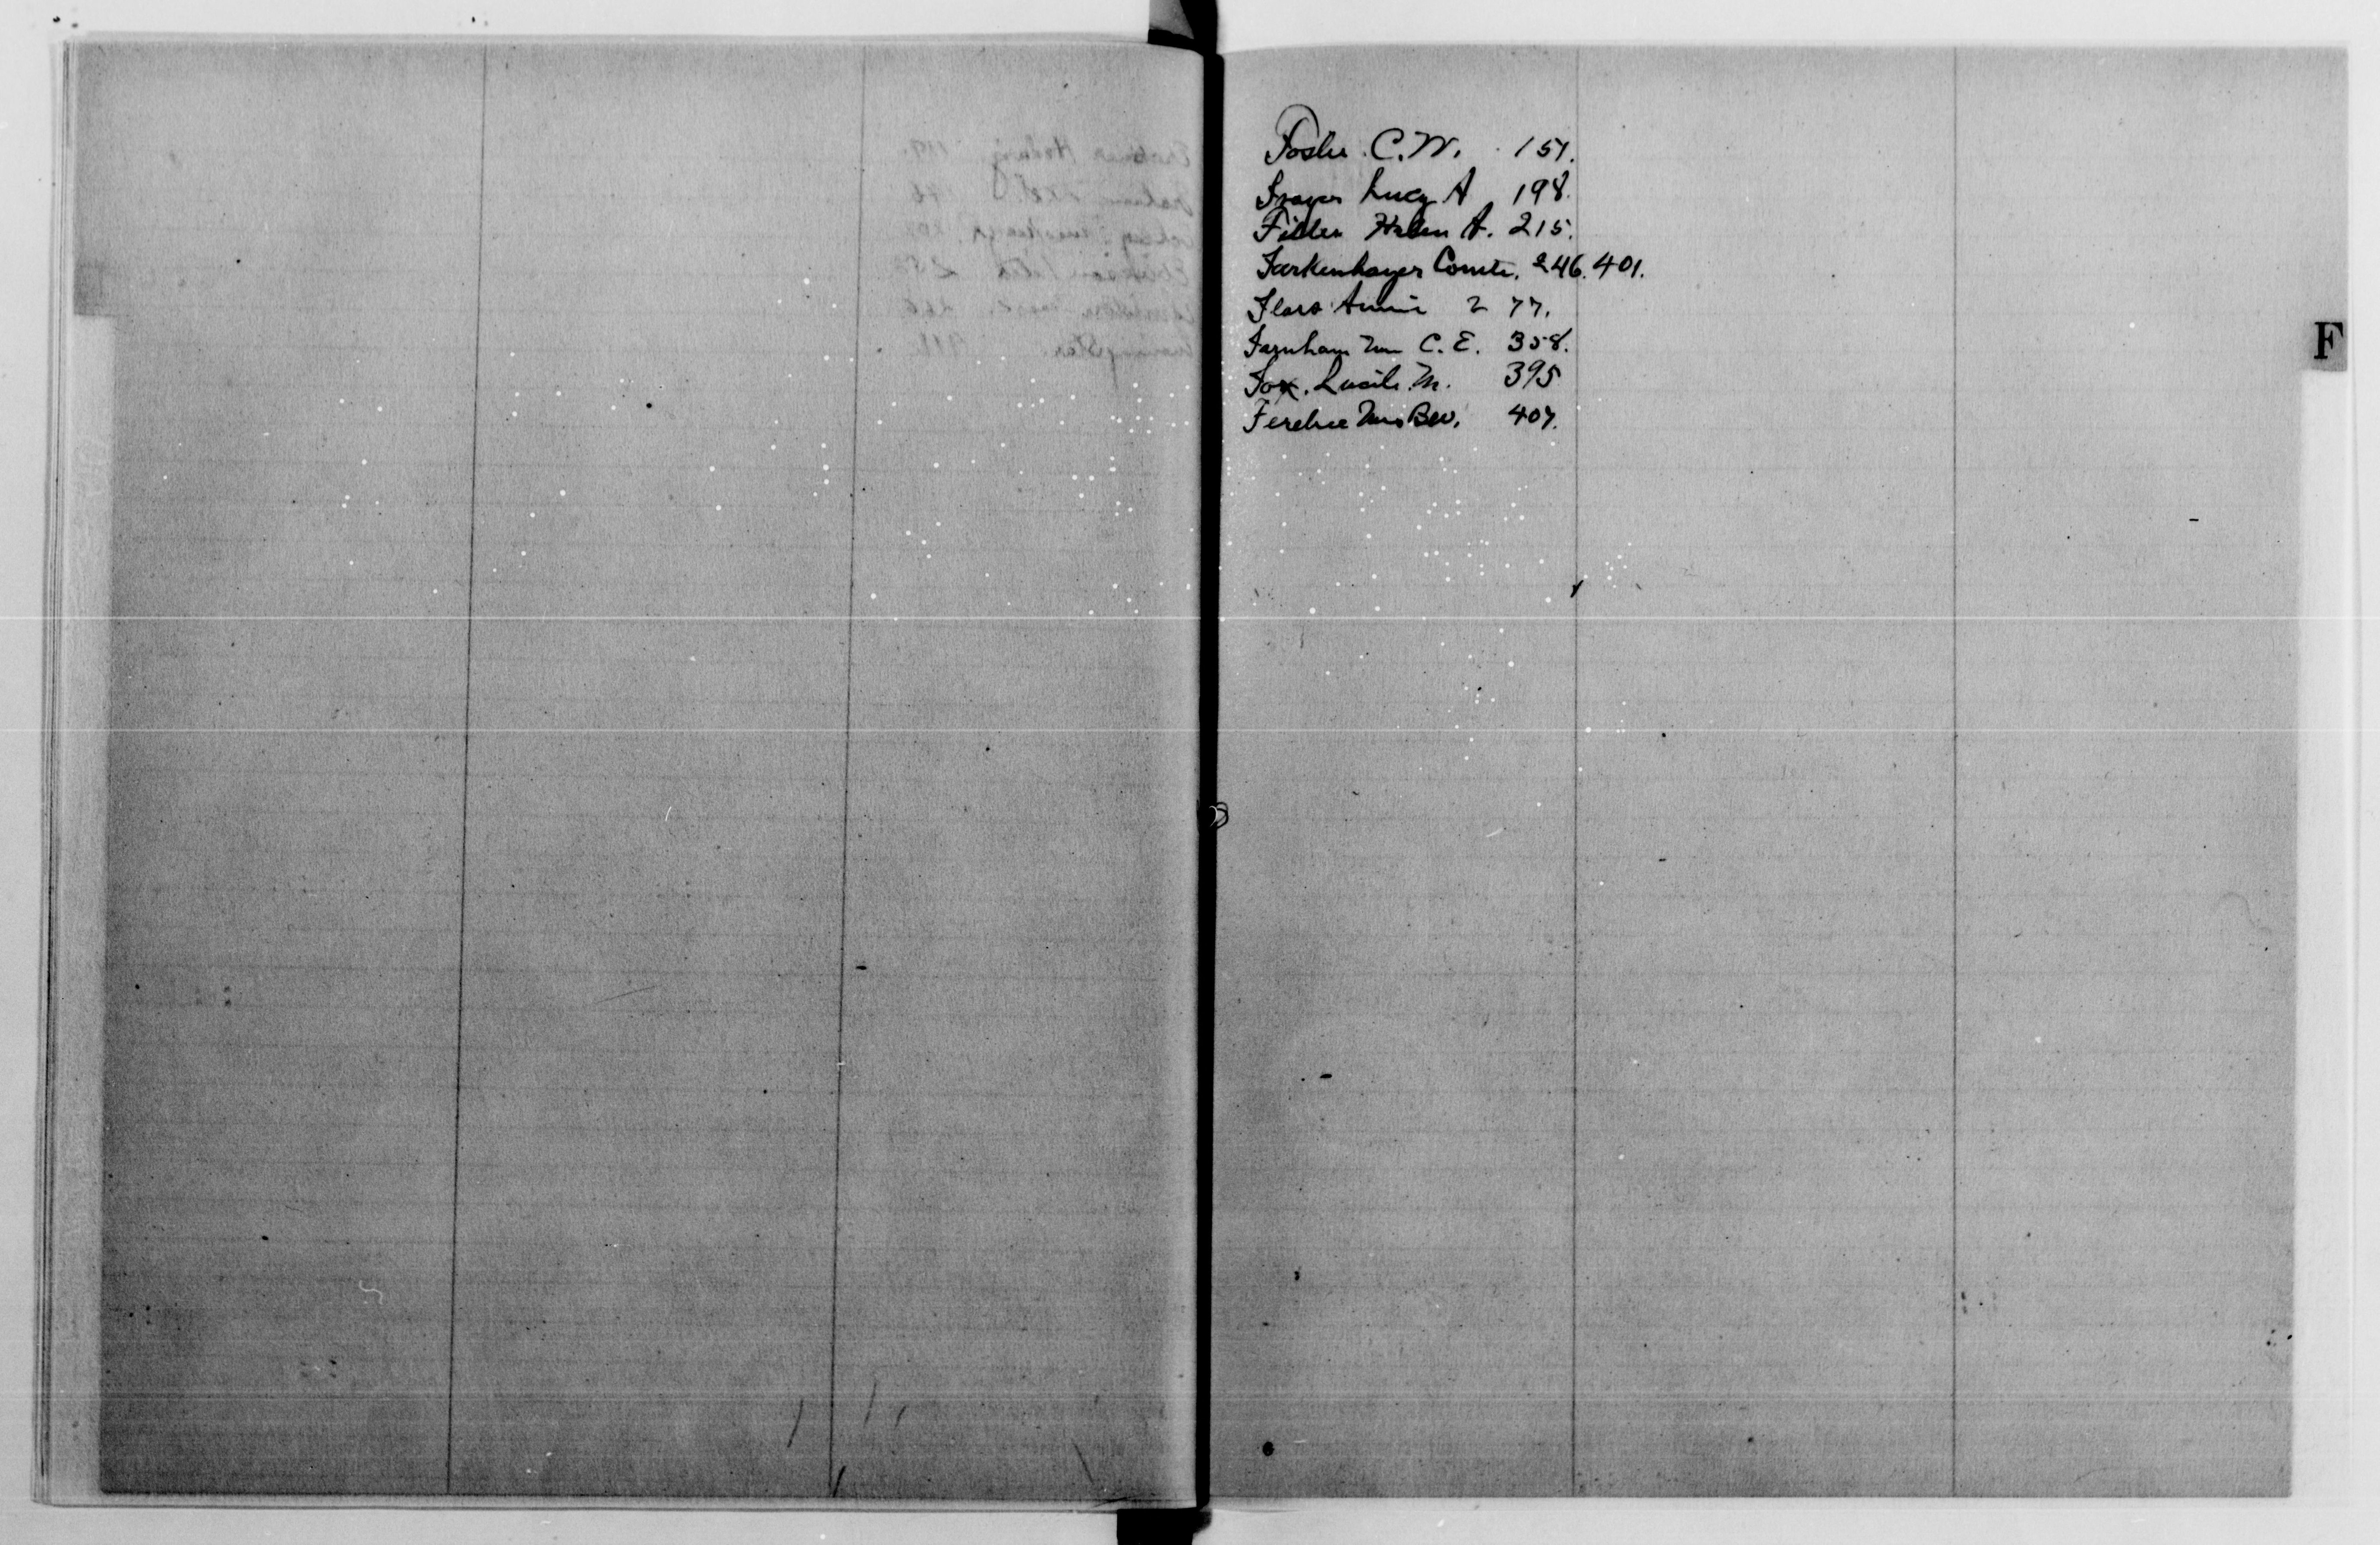 Foster C. W. 151.
Frayer Lucy A 198.
Filler Helen A. 215.
Farkenhayer Comte. 246. 401.
Flora Annie 277.
Farnham Mrs C. E. 358.
Fox. Lucile. M. 395
Ferebee Mrs Bev. 407.
F